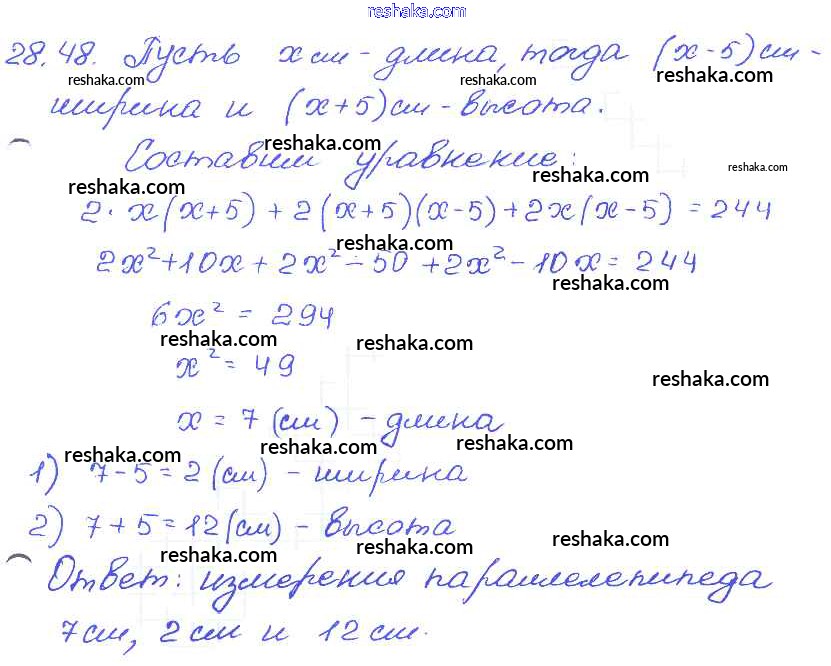 reshaka.com
28.48. Пусть x см - длина, тогда (x-5) см -
reshaka.com reshaka.com reshaka.com
ширина и (x+5) см - высота.
reshaka.com
Составим уравнение:
reshaka.com reshaka.com reshaka.com
2·x(x+5)+2(x+5)(x-5)+2x(x-5)=244
reshaka.com
2x²+10x+2x²-50+2x²-10x=244
reshaka.com
6x²=294
reshaka.com reshaka.com
x²=49
reshaka.com
x=7 (см) - длина
reshaka.com reshaka.com reshaka.com
1) 7-5=2 (см) - ширина
2) 7+5=12 (см) - высота
reshaka.com reshaka.com reshaka.com
Ответ: измерения параллелепипеда
7 см, 2 см и 12 см.